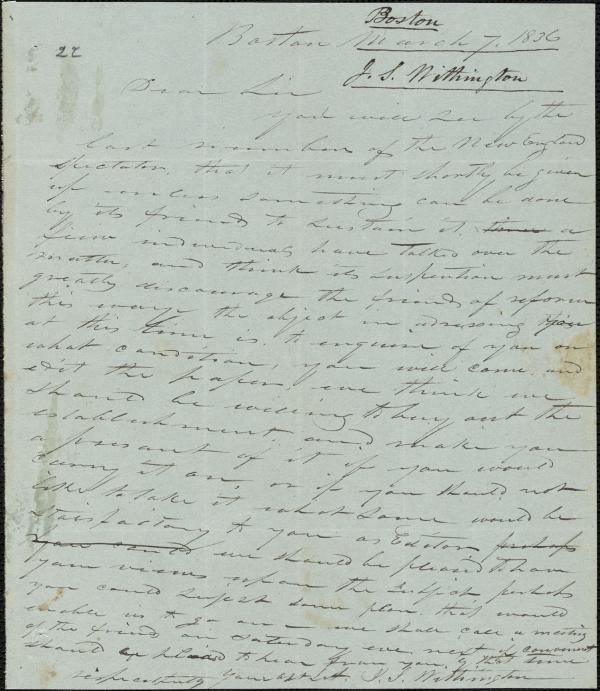 Boston
Boston March 7, 1836
22
J. S. Withington
Dear Sir
You will see by the
last number of the New England
Spectator, that it must shortly be given
up unless something can be done
by its friends to sustain it. a
few individuals have talked over the
matter, and think its suspention must
greatly discourage the friends of reform
this way. the object in adressing you
at this time is to enquire of you on
what condition, you will come and
edit the paper. we think we
should be willing to buy out the
establishment, and make you
a present of it if you would
carry it on, or if you should not
like to take it what some would be
satisfactory to you as Editor perhaps
you could we should be pleased to have
your views upon the subject perhaps
you could sugest some plan that would
enable us to go on — we shall call a meeting
of the friends on Saturday eve next if convenient
should be pleased to hear from you by that time
respectfully yours J. S. Withington